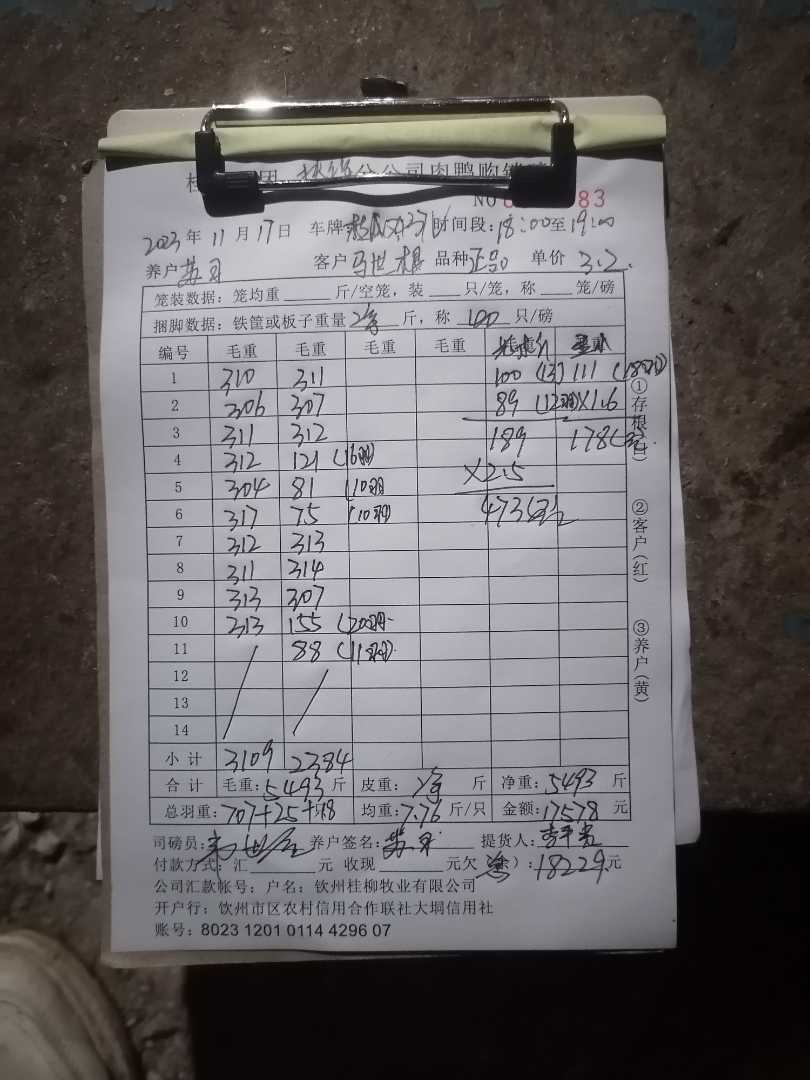 分公司肉鸭购销
NO 83
2023 年 11 月 17 日 车牌 时间段: 18:00 至 19:00
养户 苏 客户 马世 品种 正品 单价 3.2
笼装数据: 笼均重 斤/空笼, 装 只/笼, 称 笼/磅
捆脚数据: 铁筐或板子重量 斤, 称 100 只/磅
编号 毛重 毛重 毛重 毛重
1 310 311 100 (13) 111
2 306 307 89 (12羽) ×1.6
3 311 312 189 178
4 312 121 (16羽) ×2.5
5 304 81 (10羽) 473
6 317 75 (10羽)
7 312 313
8 311 314
9 313 307
10 313 155 (20羽)
11 88 (11羽)
12
13
14
小计 3109 2384
①存根(白)
②客户(红)
③养户(黄)
合计 毛重: 5493 斤 皮重: 斤 净重: 5493 斤
总羽重: 707+25+18 均重: 7.76 斤/只 金额: 17578 元
司磅员: 养户签名: 苏 提货人: 李
付款方式: 汇 元 收现 元欠 ): 18229 元
公司汇款帐号: 户名: 钦州桂柳牧业有限公司
开户行: 钦州市区农村信用合作联社大垌信用社
账号: 8023 1201 0114 4296 07